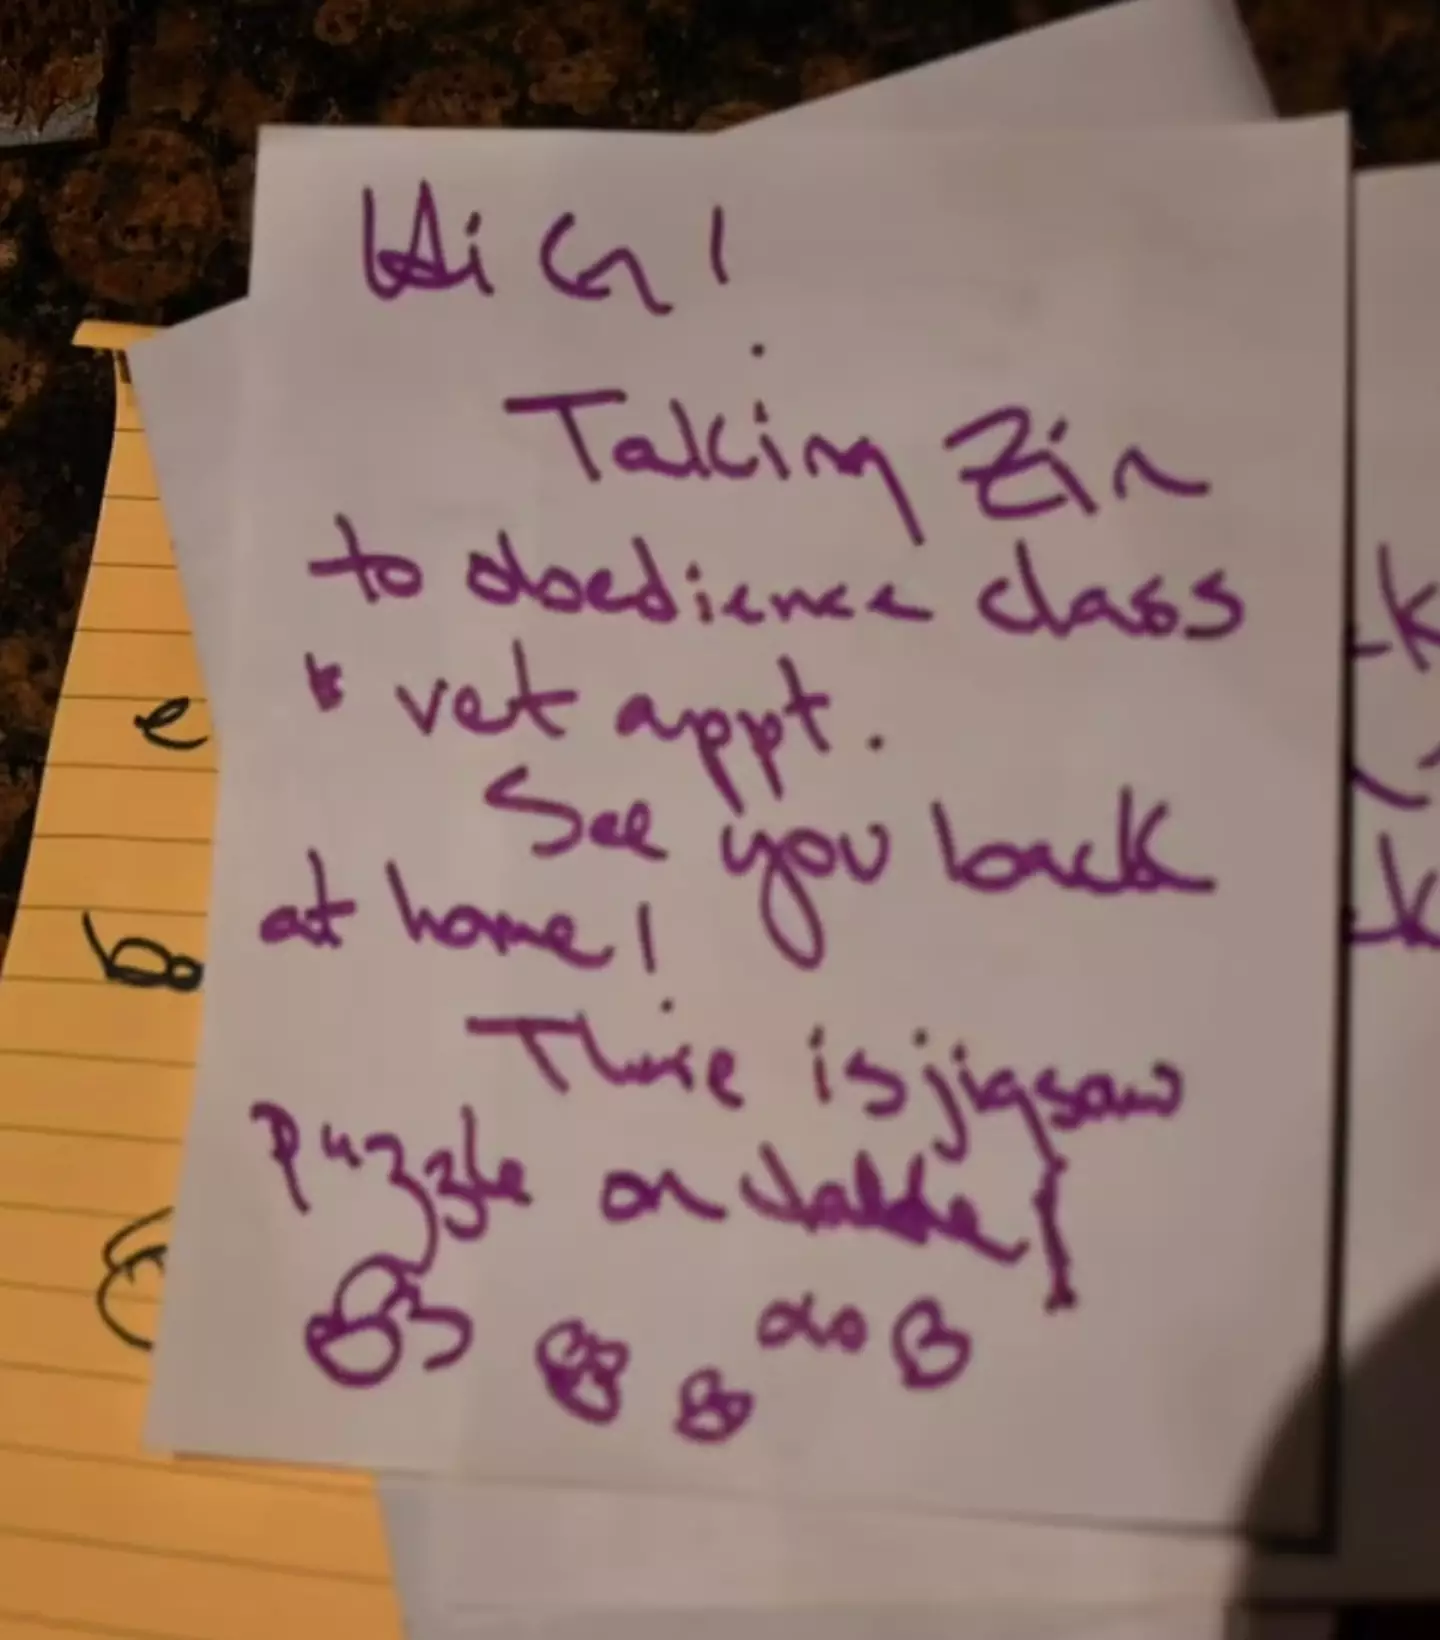 Hi G!
Taking Zin
to obedience class
& vet appt.
See you back
at home!
There is jigsaw
puzzle on table!
e
bo
k
k